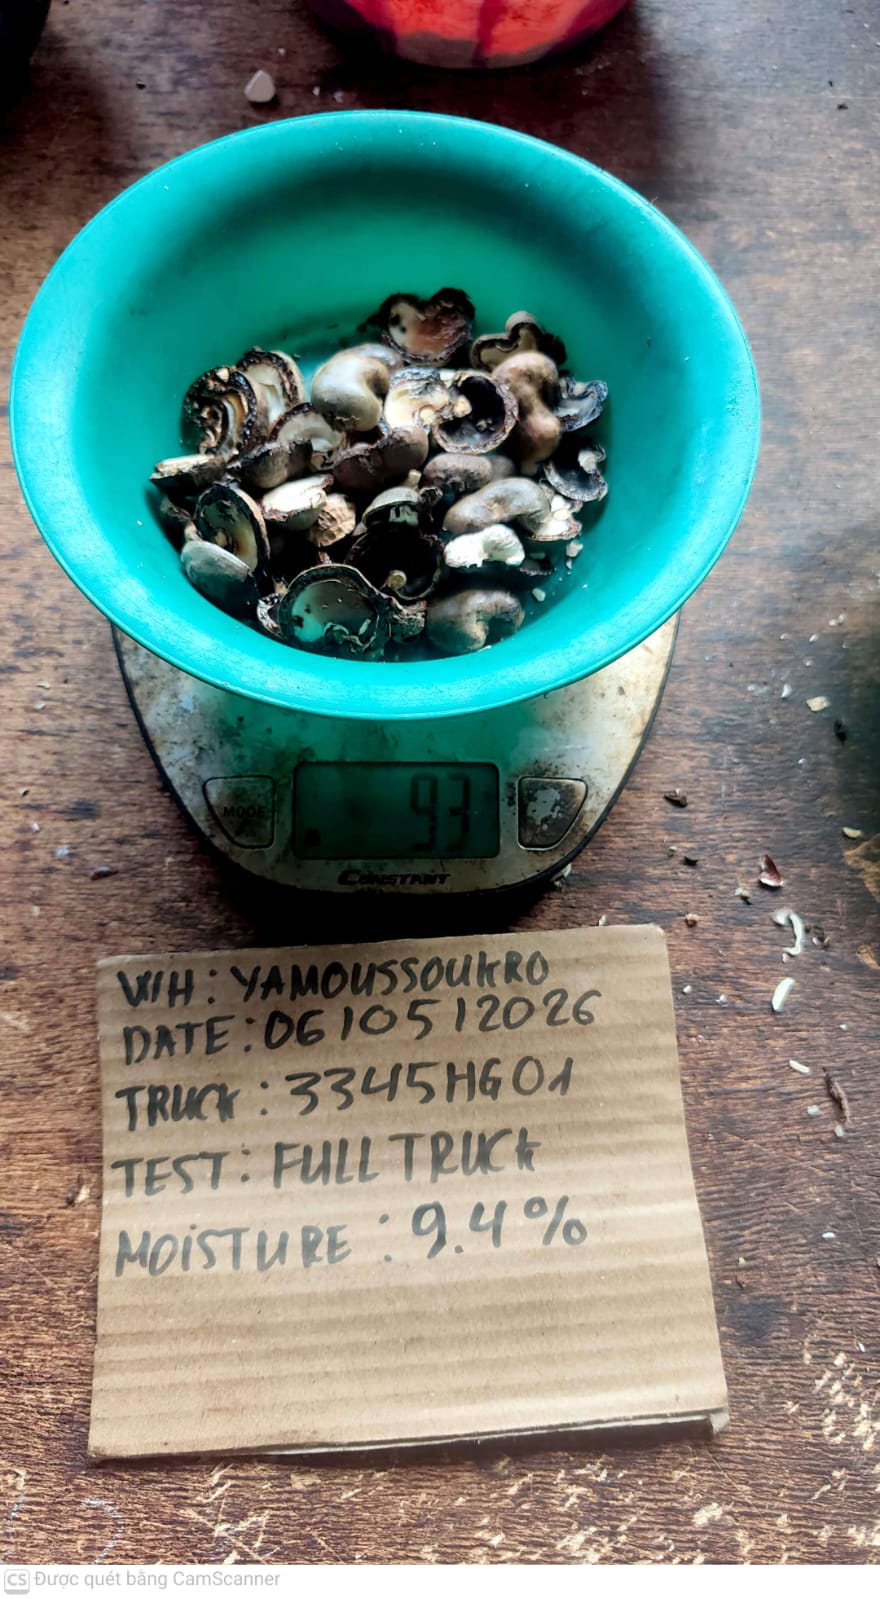 MODE
93
CONSTANT
W/H: YAMOUSSOUKRO
DATE: 06/05/2026
TRUCK: 3345HG01
TEST: FULL TRUCK
MOISTURE: 9.4%
CS Được quét bằng CamScanner